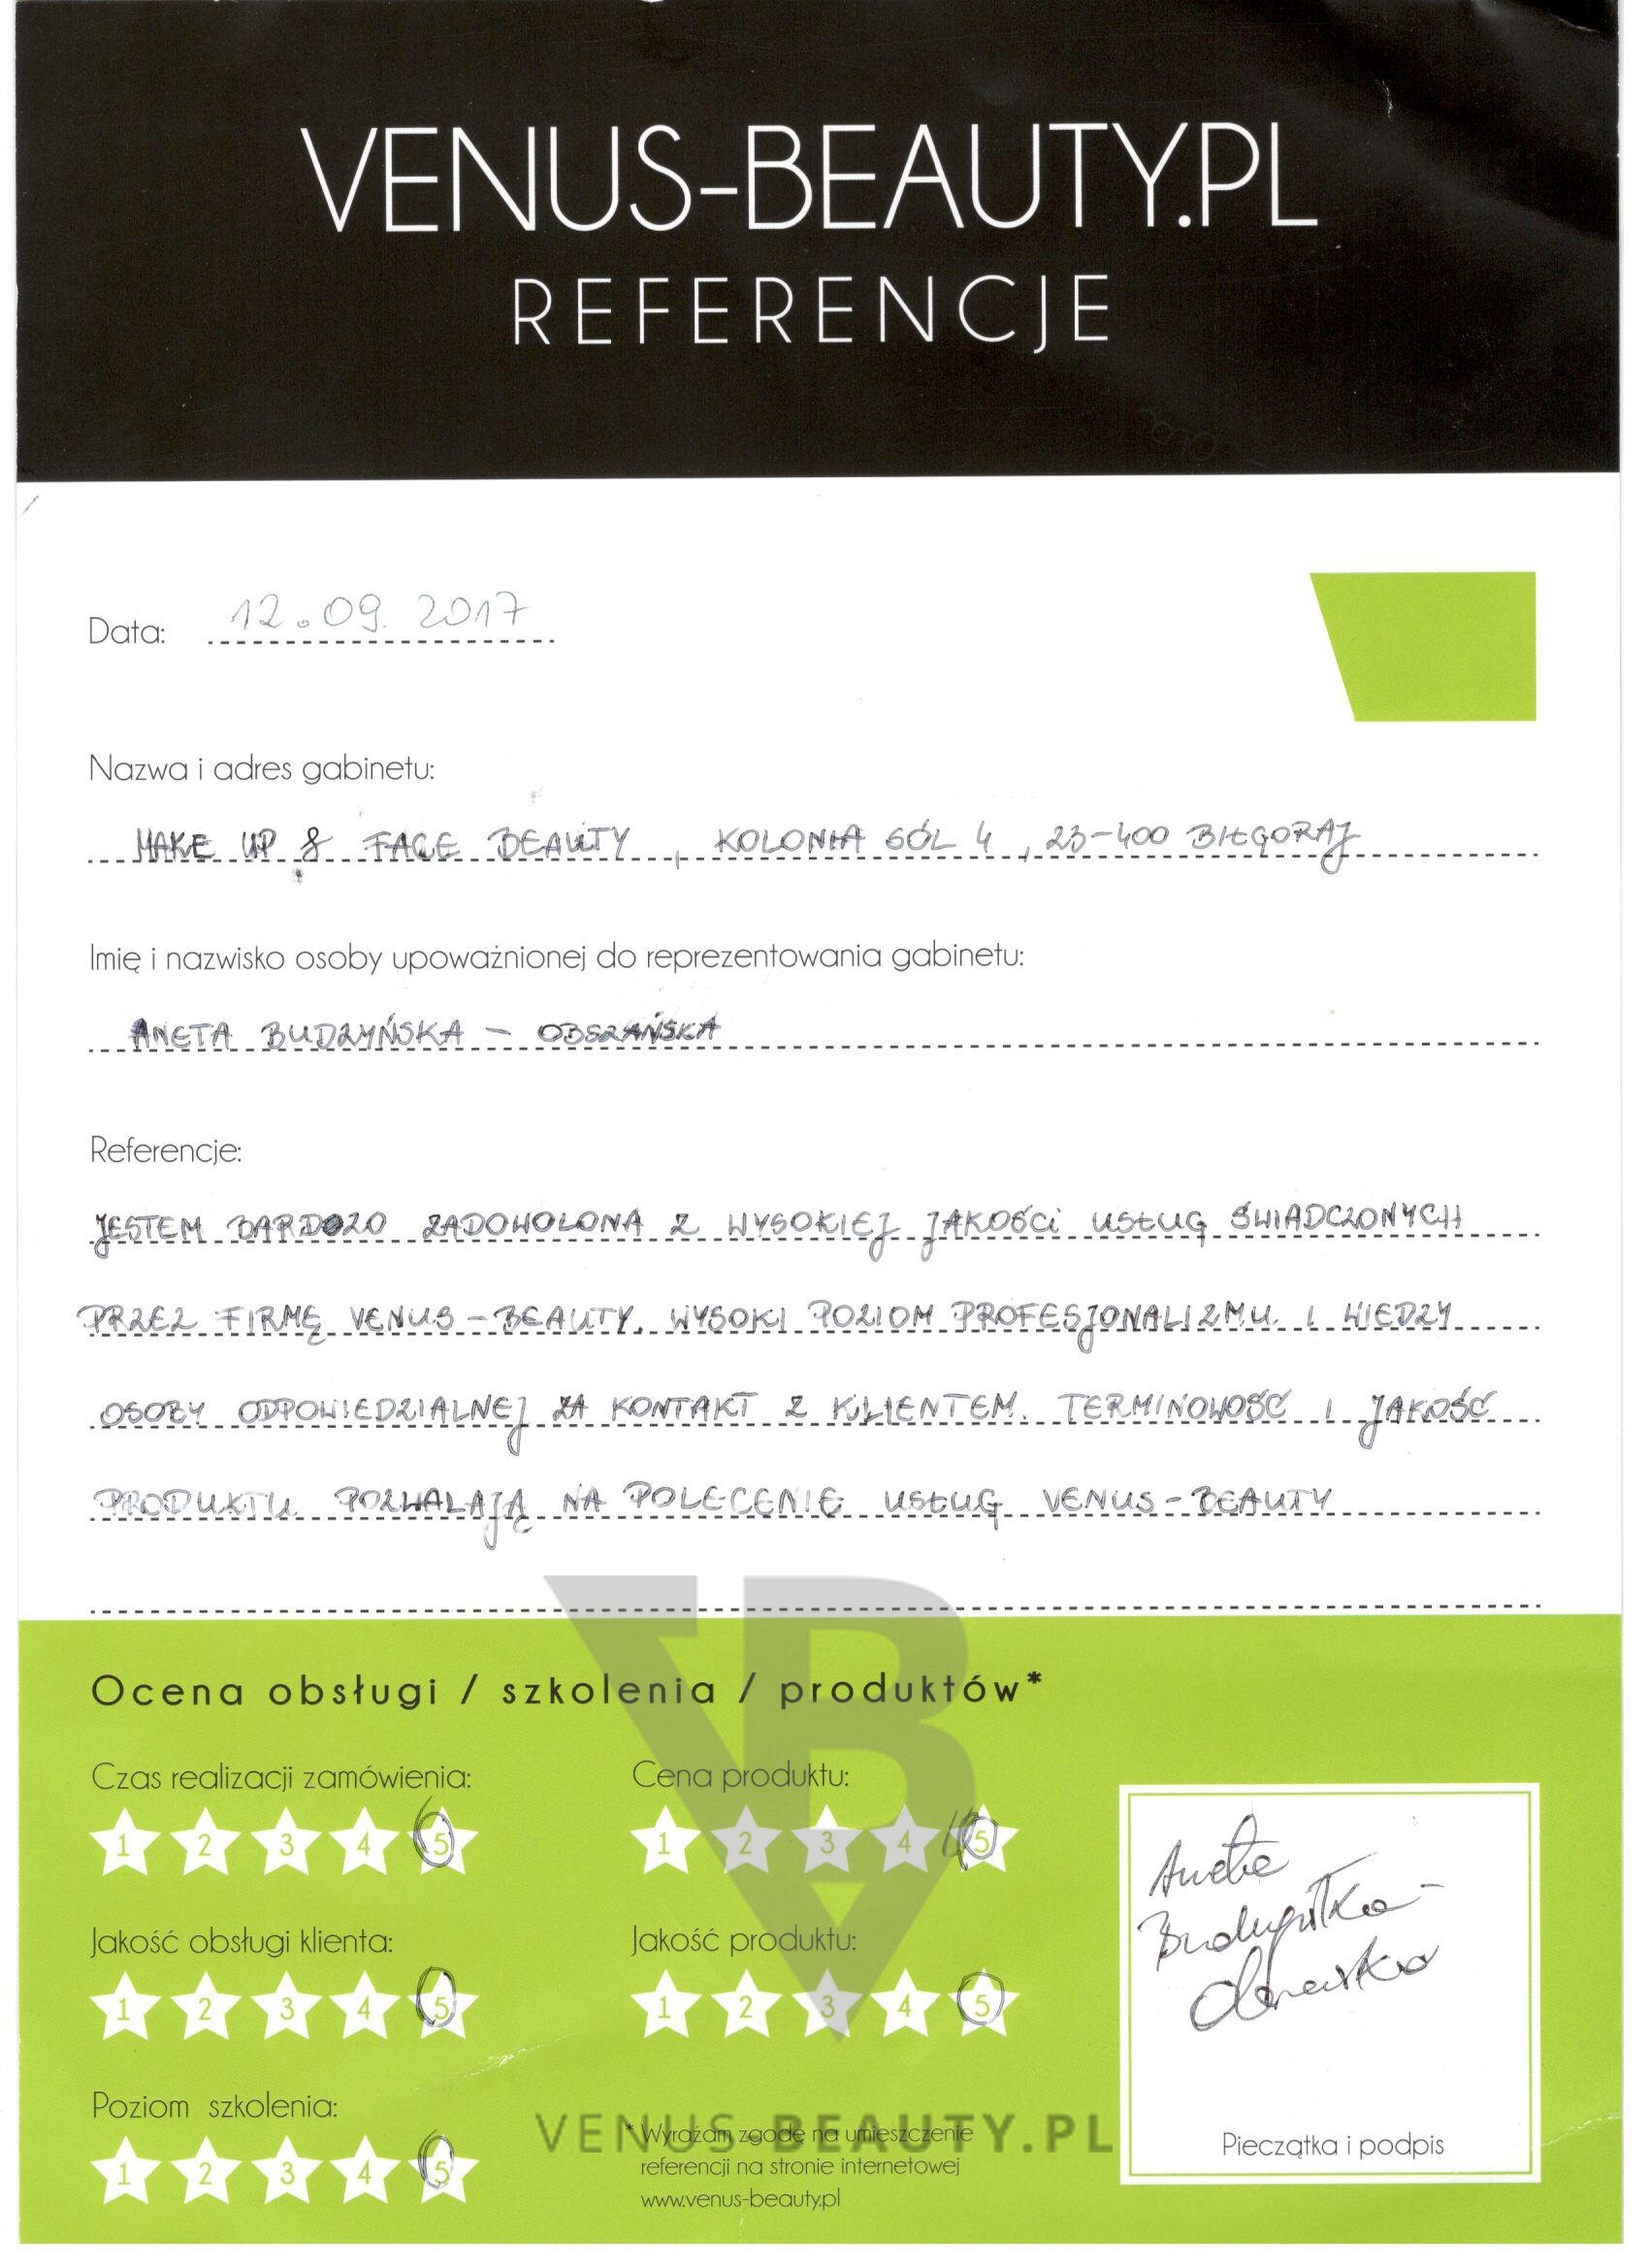 VENUS-BEAUTY.PL
REFERENCJE
Data: 12.09.2017
Nazwa i adres gabinetu:
MAKE UP & FACE BEAUTY, KOLONIA SÓL 4, 23-400 BIŁGORAJ
Imię i nazwisko osoby upoważnionej do reprezentowania gabinetu:
ANETA BUDZYŃSKA - OBSZAŃSKA
Referencje:
JESTEM BARDZO ZADOWOLONA Z WYSOKIEJ JAKOŚCI USŁUG ŚWIADCZONYCH
PRZEZ FIRMĘ VENUS-BEAUTY. WYSOKI POZIOM PROFESJONALIZMU I WIEDZY
OSOBY ODPOWIEDZIALNEJ ZA KONTAKT Z KLIENTEM. TERMINOWOŚĆ I JAKOŚĆ
PRODUKTU POZWALAJĄ NA POLECENIE USŁUG VENUS-BEAUTY
Ocena obsługi / szkolenia / produktów*
Czas realizacji zamówienia:
1 2 3 4 5
Cena produktu:
1 2 3 4 5
Jakość obsługi klienta:
1 2 3 4 5
Jakość produktu:
1 2 3 4 5
Poziom szkolenia:
1 2 3 4 5
* Wyrażam zgodę na umieszczenie
referencji na stronie internetowej
www.venus-beauty.pl
Aneta
Pieczątka i podpis
VB
VENUS-BEAUTY.PL